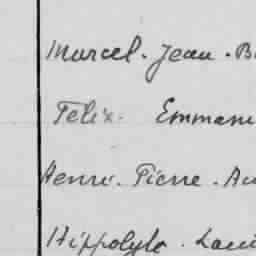 Marcel. Jean. B
Felix. Emmanu
Henri. Pierre. Au
Hippolyte. Loui